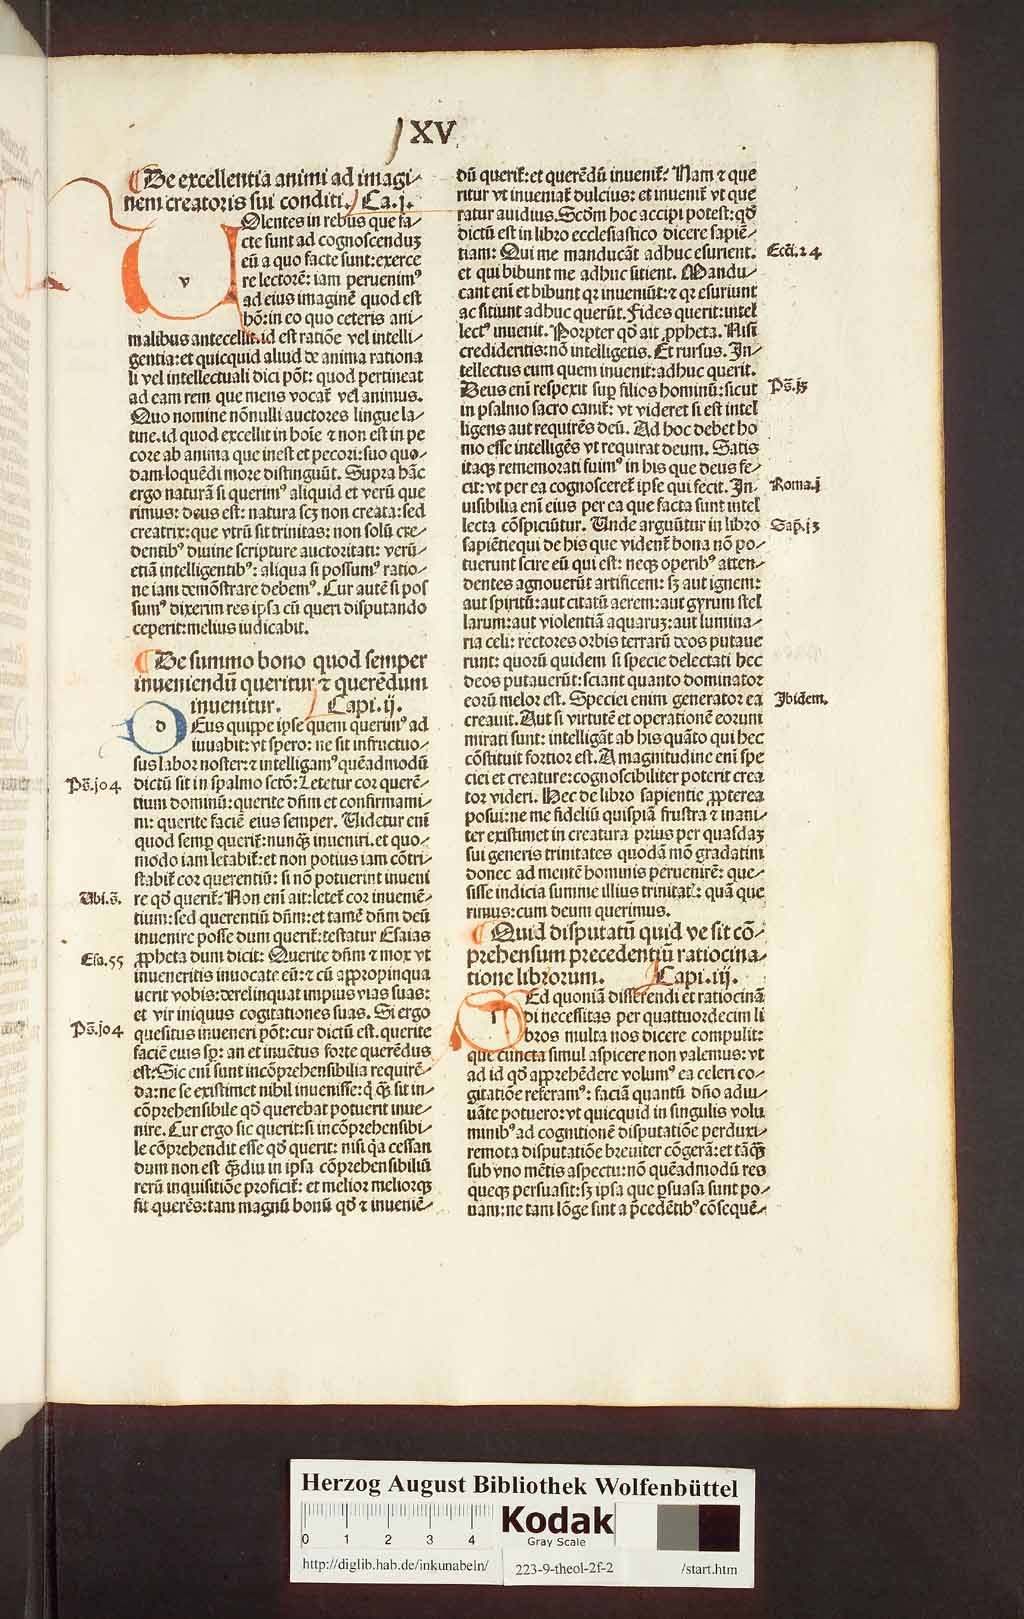 XV
De excellentia animi ad imagi-
nem creatoris sui conditi. Ca.j.
v
Olentes in rebus que fa-
cte sunt ad cognoscenduꝫ
eū a quo facte sunt: exerce
re lectorē: iam peruenimꝰ
ad eius imaginē quod est
hō: in eo quo ceteris ani-
malibus antecellit. id est ratiōe vel intelli-
gentia: et quicquid aliud de anima rationa
li vel intellectuali dici pōt: quod pertineat
ad eam rem que mens vocat̄ vel animus.
Quo nomine nōnulli auctores lingue la-
tine. id quod excellit in hoīe ⁊ non est in pe
core ab anima que inest et pecori: suo quo-
dam loquēdi more distinguūt. Supra hāc
ergo naturā si querimꝰ aliquid et verū que
rimus: deus est: natura scꝫ non creata: sed
creatrix: que vtrū sit trinitas: non solū cre-
dentibꝰ diuine scripture auctoritati: verū-
etiā intelligentibꝰ: aliqua si possumꝰ ratio-
ne iam demōstrare debemꝰ. Cur autē si pos
sumꝰ dixerim res ipsa cū queri disputando
ceperit: melius iudicabit.
De summo bono quod semper
inueniendū queritur ⁊ querēdum
inuenitur. Capi.ij.
d
Eus quippe ipse quem querimꝰ ad
iuuabit: vt spero: ne sit infructuo-
sus labor noster: ⁊ intelligamꝰ quēadmodū
Ps̄.jo4. dictū sit in psalmo sctō: Letetur cor querē-
tium dominū: querite dn̄m et confirmami-
ni: querite faciē eius semper. Uidetur enī
quod semꝑ querit̄: nunqꝫ inueniri. et quo-
modo iam letabit̄: et non potius iam cōtri-
stabit̄ cor querentiū: si nō potuerint inueni
Ubi.s̄. re qd̄ querit̄? Non enī ait: letet̄ cor inueniē-
tium: sed querentiū dn̄m: et tamē dn̄m deū
inuenire posse dum querit̄: testatur Esaias
Esa.55 ꝓpheta dum dicit: Querite dn̄m ⁊ mox vt
inueneritis inuocate eū: ⁊ cū appropinqua
uerit vobis: derelinquat impius vias suas:
et vir iniquus cogitationes suas. Si ergo
Ps̄.jo4 quesitus inueneri pōt: cur dictū est. querite
faciē eius sp̄: an et inuētus forte querēdus
est? Sic enī sunt incōprehensibilia requirē-
da: ne se existimet nihil inuenisse: q̄ qꝫ sit in-
cōprehensibile qd̄ querebat potuerit inue-
nire. Cur ergo sic querit: si incōprehensibi-
le cōprehendit esse qd̄ querit: nisi q̄a cessan
dum non est qꝫdiu in ipsa cōprehensibiliū
rerū inquisitiōe proficit̄: et melior meliorqꝫ
fit querēs: tam magnū bonū qd̄ ⁊ inueniē-
dū querit̄: et querēdū inuenit̄? Nam ⁊ que
ritur vt inueniat̄ dulcius: et inuenit̄ vt que
ratur auidius. Scd̄m hoc accipi potest: qd̄
dictū est in libro ecclesiastico dicere sapiē-
tiam: Qui me manducāt adhuc esurient. Eccī.24
et qui bibunt me adhuc sitient. Mandu-
cant enī et bibunt qꝛ inueniūt: ⁊ qꝛ esuriunt
ac sitiunt adhuc querūt. Fides querit: intel
lectꝰ inuenit. Propter qd̄ ait ꝓpheta. Nisi
credideritis: nō intelligetis. Et rursus. In-
tellectus eum quem inuenit: adhuc querit.
Deus enī respexit suꝑ filios hominū: sicut Ps̄.jꝫ
in psalmo sacro canit̄: vt videret si est intel
ligens aut requirēs deū. Ad hoc debet ho
mo esse intelligēs vt requirat deum. Satis
itaqꝫ rememorati fuimꝰ in his que deus fe-
cit: vt per ea cognosceret̄ ipse qui fecit. In- Roma.j
uisibilia enī eius per ea que facta sunt intel
lecta cōspiciūtur. Unde arguūtur in libro Sap̄.jꝫ
sapiētie qui de his que vident̄ bona nō po-
tuerunt scire eū qui est: neqꝫ operibꝰ atten-
dentes agnouerūt artificem: sꝫ aut ignem:
aut spiritū: aut citatū aerem: aut gyrum stel
larum: aut violentiā aquaruꝫ: aut lumina-
ria celi: rectores orbis terrarū deos putaue
runt: quorū quidem si specie delectati hec
deos putauerūt: sciant quanto dominator
eorū melior est. Speciei enim generator ea Ibidem.
creauit. Aut si virtutē et operationē eorum
mirati sunt: intelligāt ab his quāto qui hec
cōstituit fortior est. A magnitudine enī spe
ciei et creature: cognoscibiliter poterit crea
tor videri. Hec de libro sapientie ꝓpterea
posui: ne me fideliū quispiā frustra ⁊ inani-
ter existimet in creatura prius per quasdaꝫ
sui generis trinitates quodā mō gradatim
donec ad mentē hominis peruenirē: que-
sisse indicia summe illius trinitat̄: quā que
rimus: cum deum querimus.
Quid disputatū quid ve sit cō-
prehensum precedentiū ratiocina-
tione librorum. Capi.iij.
Ed quoniā disserendi et ratiocinā
di necessitas per quattuordecim li
bros multa nos dicere compulit:
que cuncta simul aspicere non valemus: vt
ad id qd̄ apprehēdere volumꝰ ea celeri co-
gitatiōe referamꝰ: faciā quantū dn̄o adiu-
uāte potuero: vt quicquid in singulis volu
minibꝰ ad cognitionē disputatiōe perduxi-
remota disputatiōe breuiter cōgerā: et tāqꝫ
sub vno mētis aspectu: nō quēadmodū res
queqꝫ persuasit: sꝫ ipsa que ꝑsuasa sunt po-
nam: ne tam lōge sint a p̄cedētibꝰ cōsequē-
Herzog August Bibliothek Wolfenbüttel
0 1 2 3 4
Kodak
Gray Scale
http://diglib.hab.de/inkunabeln/ 223-9-theol-2f-2 /start.htm